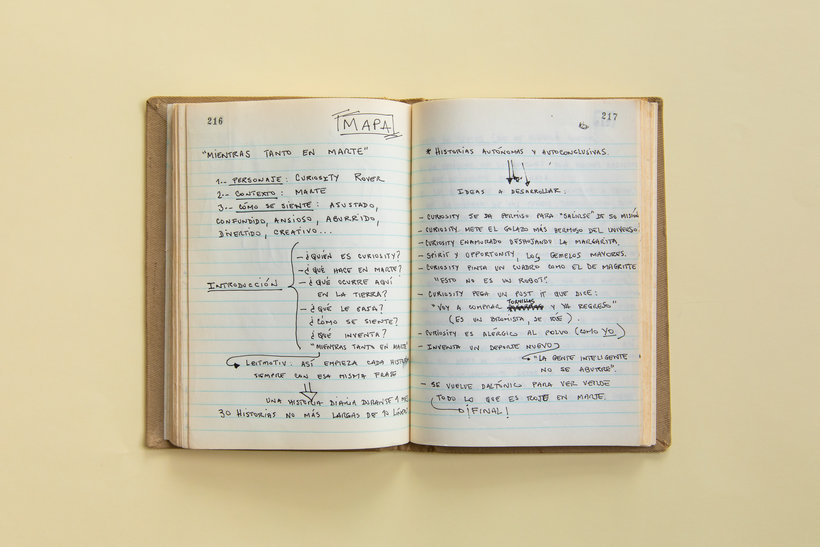 216
MAPA
"MIENTRAS TANTO EN MARTE"
1.- PERSONAJE: CURIOSITY ROVER
2.- CONTEXTO: MARTE
3.- CÓMO SE SIENTE: ASUSTADO,
CONFUNDIDO, ANSIOSO, ABURRIDO,
DIVERTIDO, CREATIVO...
INTRODUCCIÓN
- ¿QUIÉN ES CURIOSITY?
- ¿QUÉ HACE EN MARTE?
- ¿QUÉ OCURRE AQUÍ
EN LA TIERRA?
- ¿QUÉ LE PASA?
¿CÓMO SE SIENTE?
¿QUÉ INVENTA?
"MIENTRAS TANTO EN MARTE"
LEITMOTIV: ASÍ EMPIEZA CADA HISTORIA
SIEMPRE CON ESA MISMA FRASE
UNA HISTORIA DIARIA DURANTE 1 MES
30 HISTORIAS NO MÁS LARGAS DE 10 LÍNEAS
217
* HISTORIAS AUTÓNOMAS Y AUTOCONCLUSIVAS.
IDEAS A DESARROLLAR:
- CURIOSITY SE DA PERMISO PARA "SALIRSE" DE SU MISIÓN
- CURIOSITY METE EL GOLAZO MÁS HERMOSO DEL UNIVERSO.
- CURIOSITY ENAMORADO DESHOJANDO LA MARGARITA.
- SPIRIT Y OPPORTUNITY, LOS GEMELOS MAYORES.
- CURIOSITY PINTA UN CUADRO COMO EL DE MAGRITTE
"ESTO NO ES UN ROBOT".
- CURIOSITY PEGA UN POST IT QUE DICE:
"VOY A COMPRAR TORNILLOS Y YA REGRESO"
(ES UN BROMISTA, SE RÍE).
- CURIOSITY ES ALÉRGICO AL POLVO (COMO YO)
- INVENTA UN DEPORTE NUEVO
"LA GENTE INTELIGENTE
NO SE ABURRE".
- SE VUELVE DALTÓNICO PARA VER VERDE
TODO LO QUE ES ROJO EN MARTE.
¡FINAL!